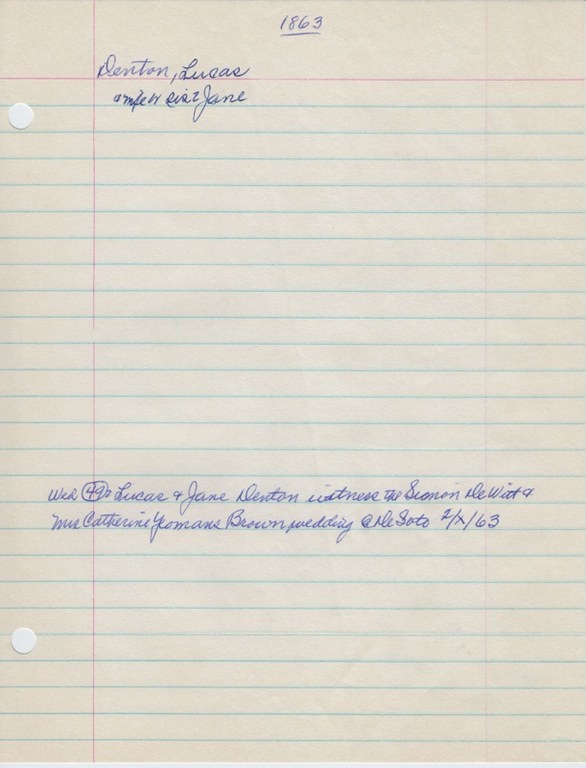 1863
Denton, Lucas
& wife or sis? Jane
Wed (49) Lucas & Jane Denton witness the Simon DeWitt &
Mrs Catherine Yeomans Brown wedding @ De Soto 2/X/63